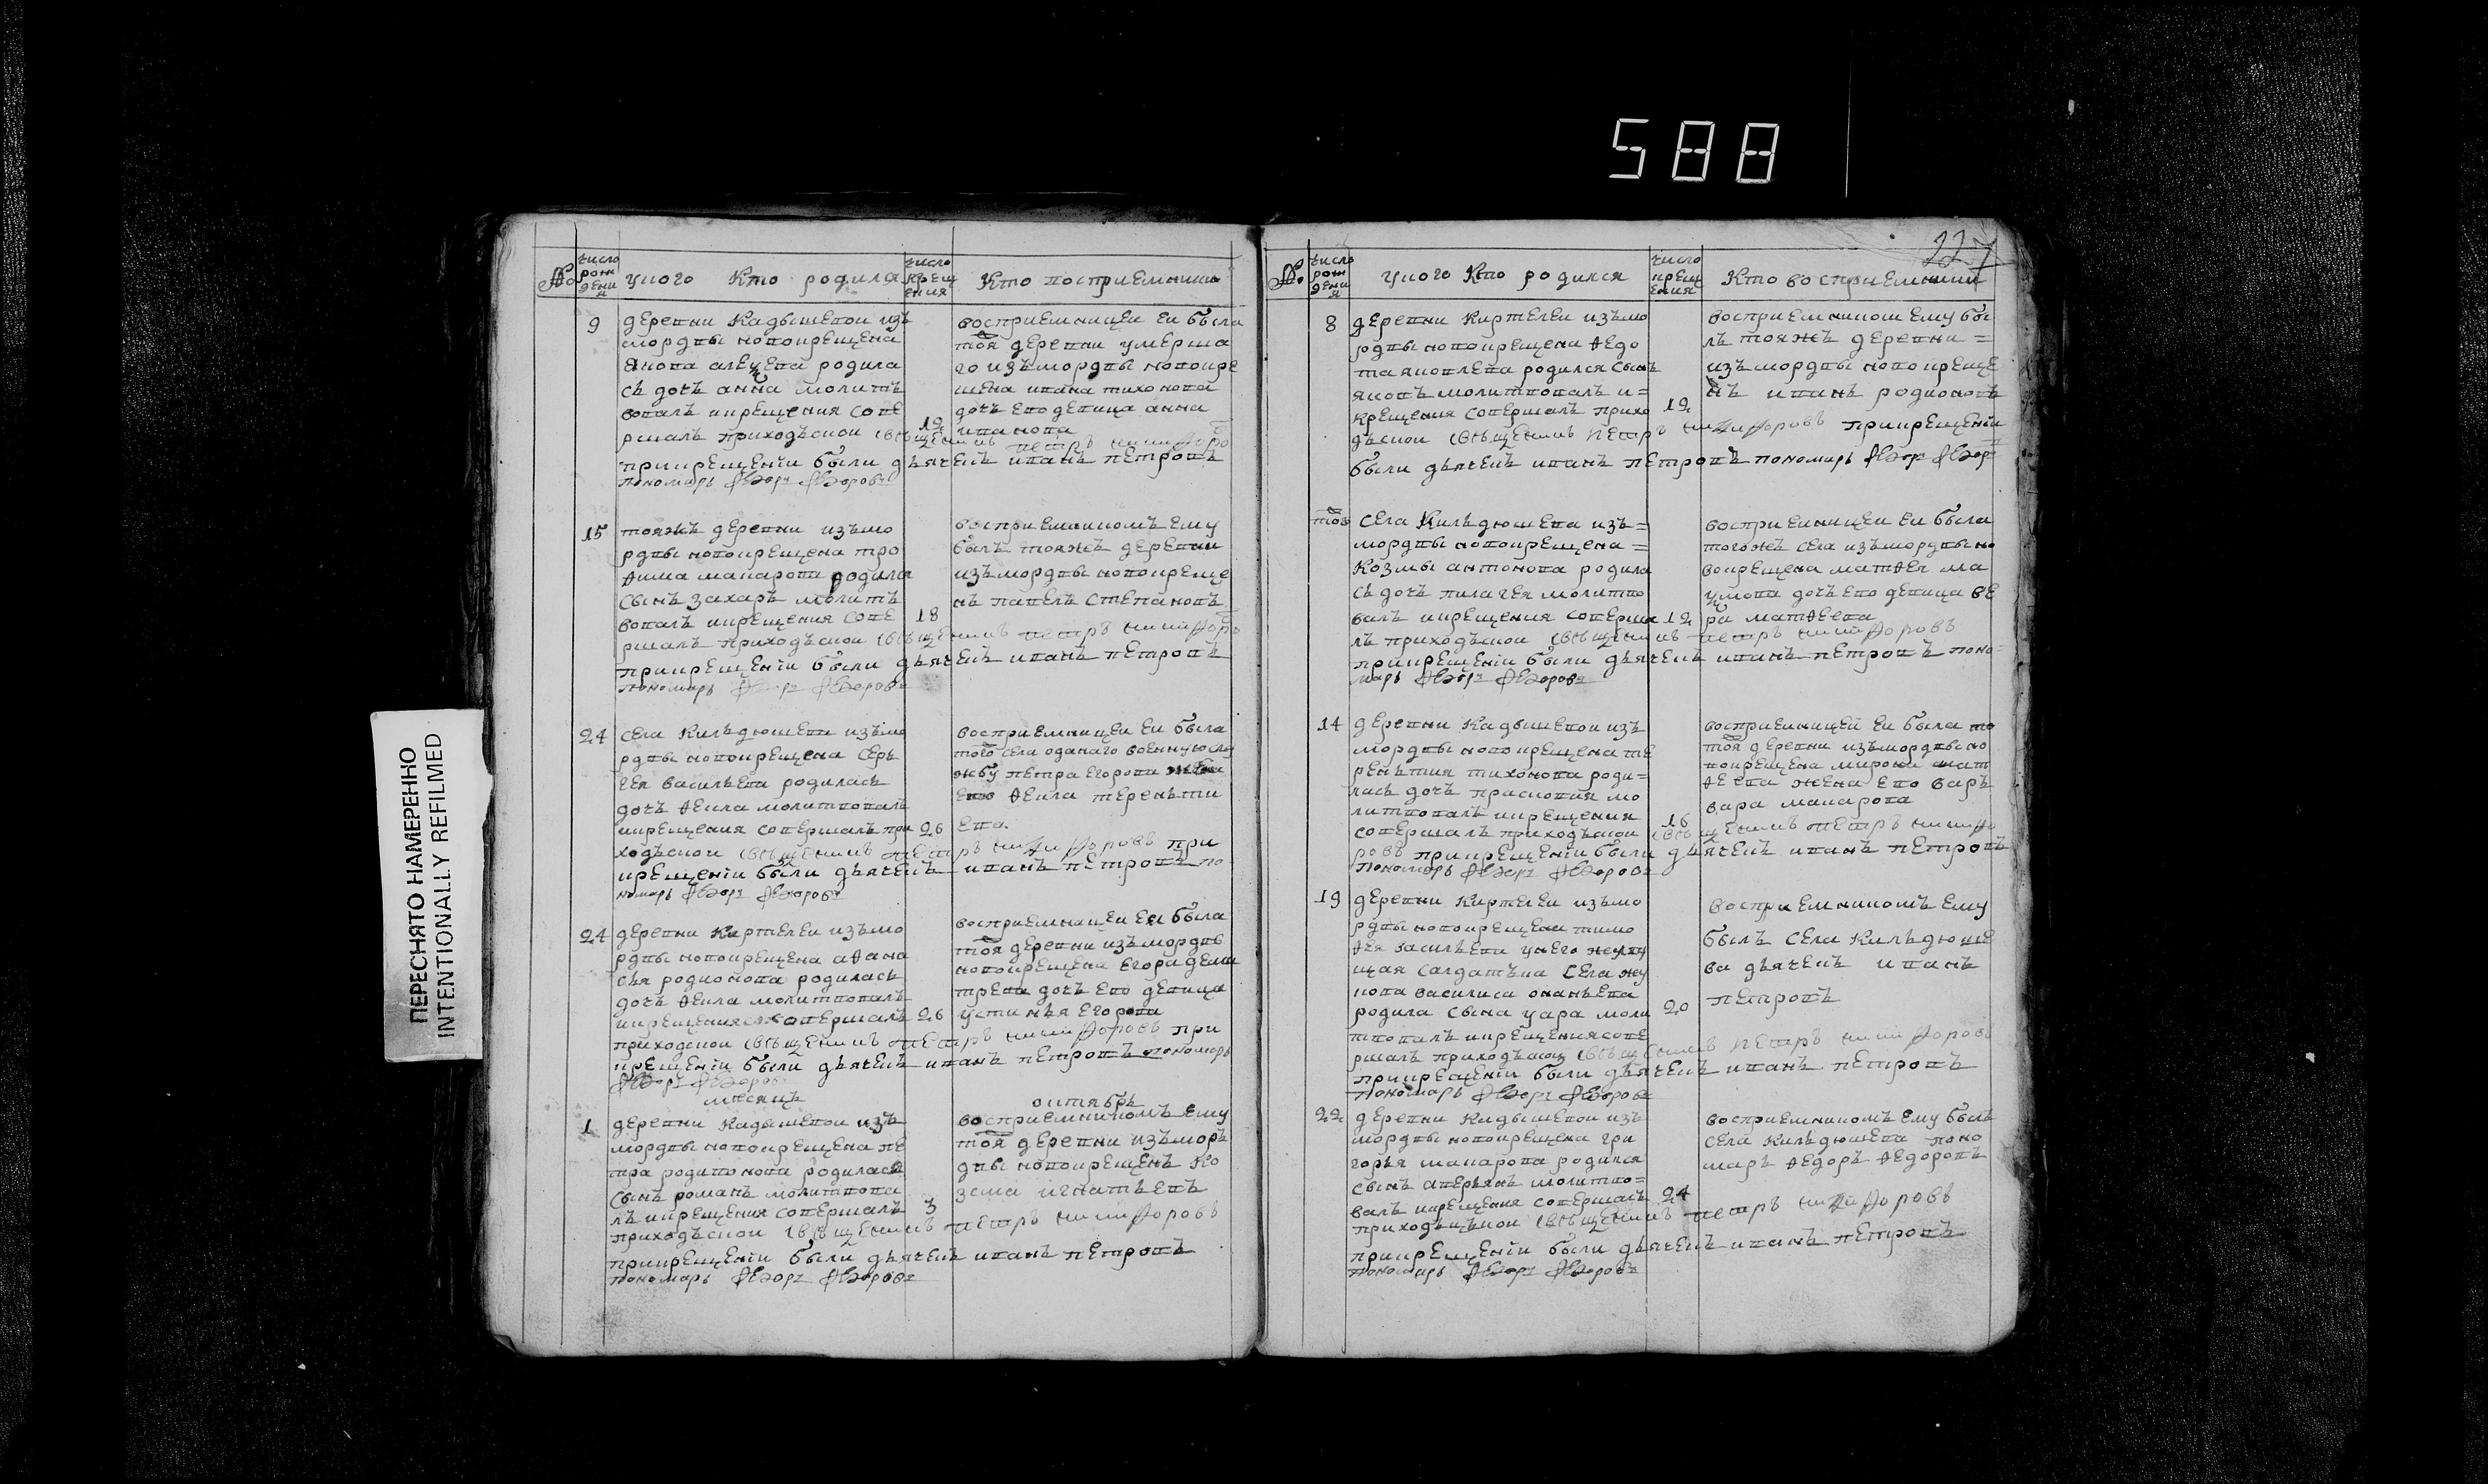 588
ПЕРЕСНЯТО НАМЕРЕННО
INTENTIONALLY REFILMED
№
число рождения
у кого кто родился
число крещения
кто восприемники
9
деревни Кадышевои изъ
мордвы новокрещена
алеѯева родила
сь дочь анна молитъ
вовалъ икрещения сове
ршалъ приходъскои священникъ петръ никифоро
въ
прикрещенїи были дьячекъ иванъ петровъ
пономарь Ѳедоръ Ѳедоровъ
12
восприемницеи еи была
тоя деревни умерша
го изъ мордвы новокре
щена ивана тихонова
дочь ево девица анна
иванова
15
тояжъ деревни изъмо
рдвы новокрещена тро
ѳима макарова родился
сынъ захаръ молитъ
вовалъ икрещения сове
ршалъ приходъскои священникъ петръ никифоро
въ
прикрещенїи были дьячекъ иванъ петровъ
пономарь Ѳедоръ Ѳедоровъ
18
восприемникомъ ему
былъ тояжъ деревни
изъмордвы новокреще
нъ павелъ степановъ
24
села Кильдюшева изъмо
рдвы новокрещена серь
гея васильева родилась
дочь ѳекла молитвовалъ
икрещения совершалъ при
ходъскои священникъ петръ никифоровъ при
крещенїи были дьячекъ иванъ петровъ по
номарь Ѳедоръ Ѳедоровъ
26
восприемницеи еи была
того села оданаго военную слу
жбу петра егорова жена
ево ѳекла теренъти
ева
24
деревни Киртелеи изъмо
рдвы новокрещена аѳана
сья родионова родилась
дочь ѳекла молитвовалъ
икрещения совершалъ
приходскои священникъ петръ никифоровъ при
крещенїи были дьячекъ иванъ петровъ пономарь
Ѳедоръ Ѳедоровъ
26
восприемницеи еи была
тоя деревни изъмордвы
новокрещена егора дъми
трева дочь ево девица
устинья егорова
месяцъ октябрь
1
деревни Кадышевои изъ
мордвы новокрещена пе
тра родионова родился
сынъ романъ молитвова
лъ икрещения совершалъ
приходъскои священникъ петръ никифоровъ
прикрещенїи были дьячекъ иванъ петровъ
пономарь Ѳедоръ Ѳедоровъ
3
восприемникомъ ему
тоя деревни изъморъ
двы новокрещенъ ко
зма игнатьевъ
227
№
число рождения
у кого кто родился
число крещения
кто восприемники
8
деревни Киртелеи изъмо
рдвы новокрещена ѳедо
та яковлева родился сынъ
яковъ молитвовалъ и=
крещения совершалъ прихо
дъскои священникъ петръ никифоровъ прикрещенїи
были дьячекъ иванъ петровъ пономарь Ѳедоръ Ѳедор
12
восприемникомъ ему бы
лъ тояжъ деревни =
изъмордвы новокреще
нъ иванъ родионовъ
тов
села Кильдюшева изъ=
мордвы новокрещена =
козмы антонова родила
сь дочь пилагея молитво
валъ икрещения соверша
лъ приходъскои священникъ петръ никифоровъ
прикрещенїи были дьячекъ иванъ петровъ поно=
марь Ѳедоръ Ѳедоровъ
12
восприемницеи еи была
тогожъ села изъмордвы но
вокрещена матѳея ма
ѯимова дочь ево девица ве
ра матѳеева
14
деревни Кадышевои изъ
мордвы новокрещена те
ренътия тихонова роди=
лась дочь прасковия мо
литвовалъ икрещения
совершалъ приходъскои священникъ петръ никифо
ровъ прикрещенїи были дьячекъ иванъ петровъ
пономарь Ѳедоръ Ѳедоровъ
16
восприемницеи еи была то
тоя деревни изъмордвы но
вокрещена мирона мат
ѳеева жена ево варъ
вара макарова
19
деревни Киртелеи изъмо
рдвы новокрещена тимо
ѳея васильева у него живу
щая салдатъка села жу
кова василиса ананьева
родила сына уара моли
твовалъ икрещения сове
ршалъ приходъскои священникъ петръ никифоровъ
прикрещенїи были дьячекъ иванъ петровъ
пономарь Ѳедоръ Ѳедоровъ
20
восприемникомъ ему
былъ села Кильдюше
ва дьячекъ иванъ
петровъ
22
деревни Кадышевои изъ
мордвы новокрещена гри
горья макарова родился
сынъ аверьянъ молитво=
валъ икрещения совершалъ
приходъскои священникъ петръ никифоровъ
прикрещенїи были дьячекъ иванъ петровъ
пономарь Ѳедоръ Ѳедоровъ
24
восприемникомъ ему былъ
села Кильдюшева поно
марь ѳедоръ ѳедоровъ